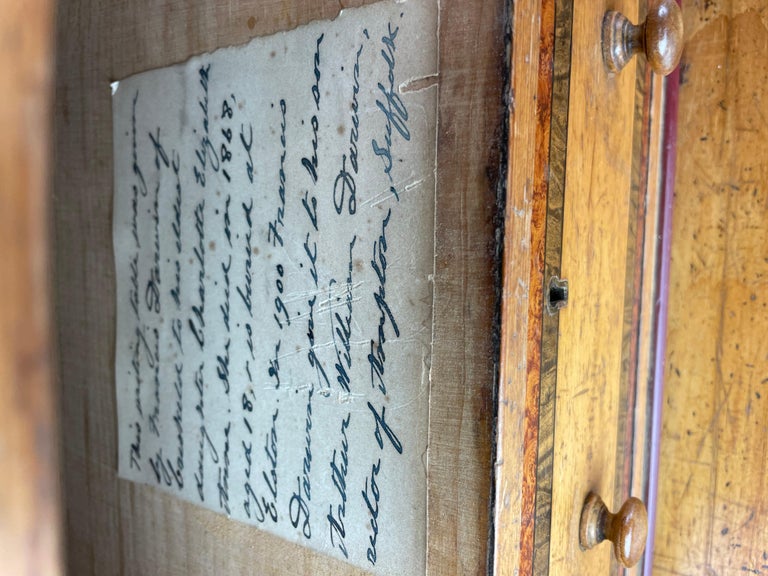 This writing table was given
by Francis Darwin of
Creskeld to his eldest
daughter Charlotte Elizabeth
Thorne. She died in 1868,
aged 18, & is buried at
Elston. In 1900 Francis
Darwin gave it to his son
Arthur William Darwin,
rector of Thrapston, Suffolk.